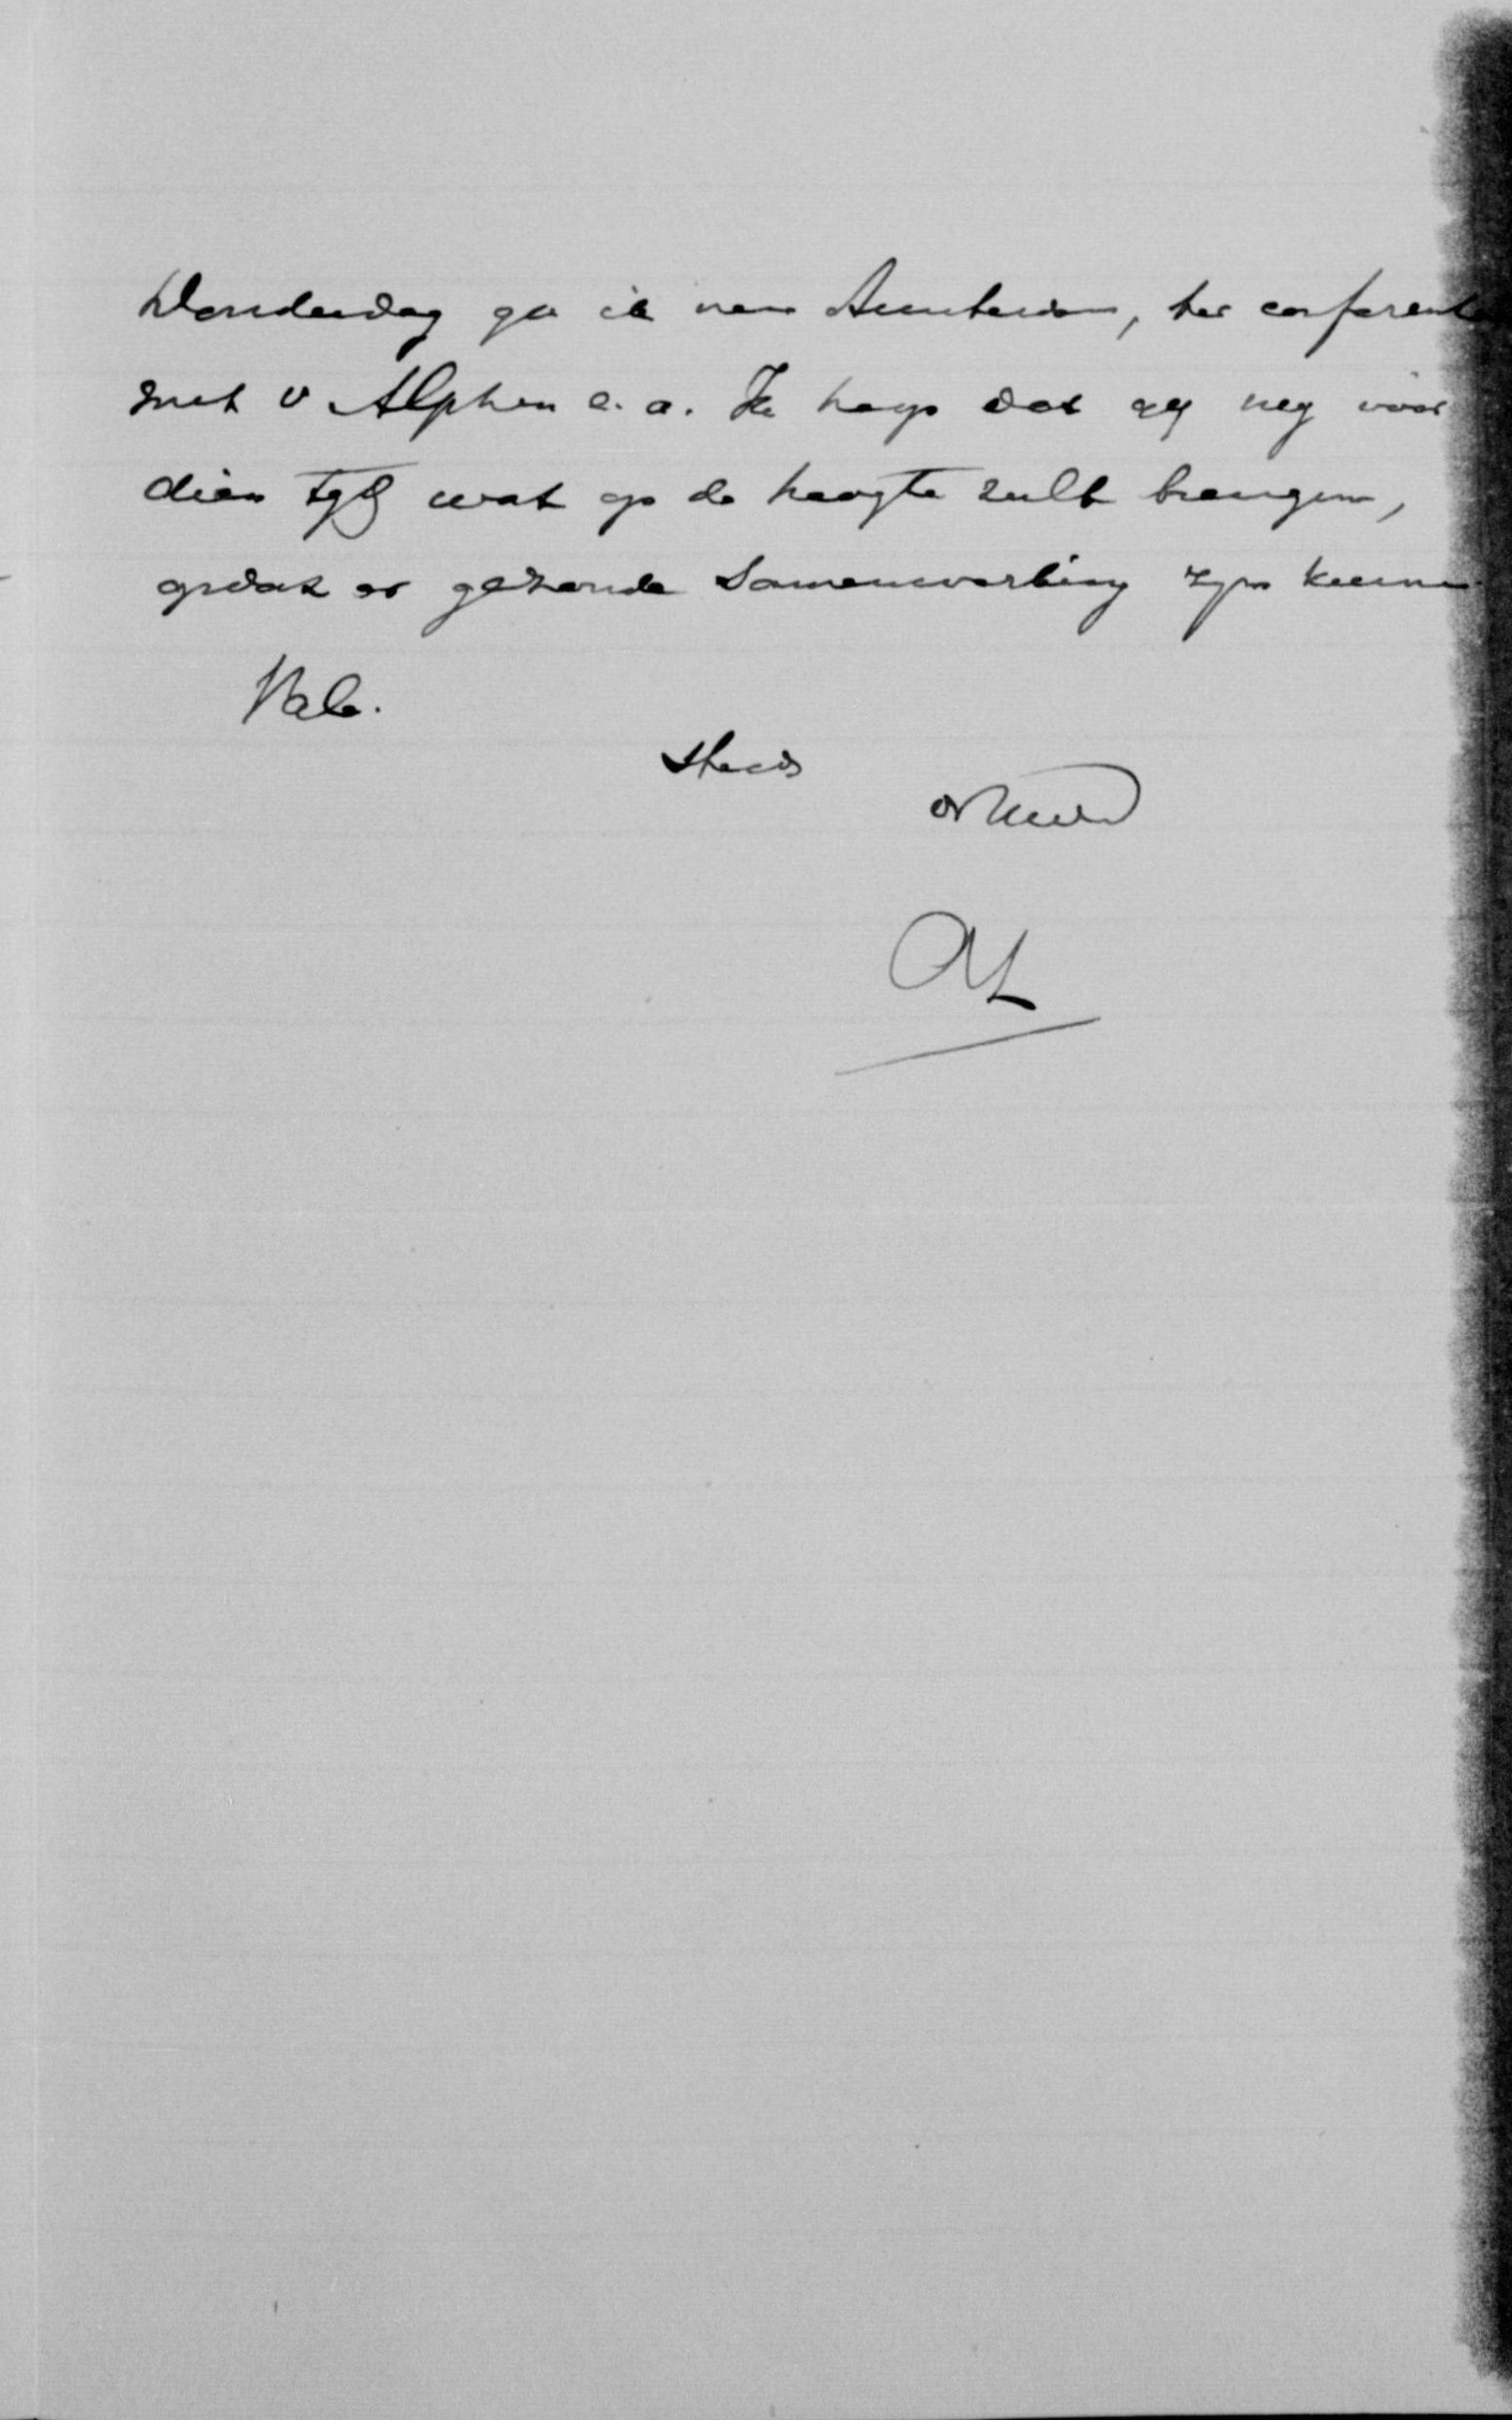 Donderdag ga ik naar Amsterdam, ter conferentie
met v Alphen e. a. Ik hoop dat gij mij vóór
dien tijd wat op de hoogte zult brengen,
opdat er gezonde samenwerking zijn kunne.
Vale.
steeds